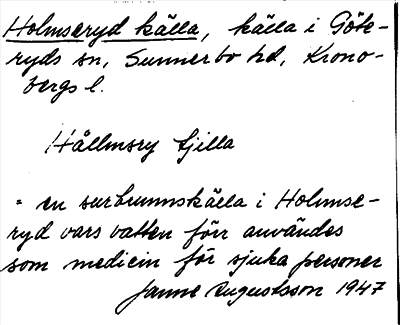 Holmseryd källa, källa i Göte-
ryds sn, Sunnerbo hd, Krono-
bergs l.
Hållmsry tjilla
= en surbrunnskälla i Holmse-
ryd vars vatten förr användes
som medicin för sjuka personer
Janne Augustsson 1947